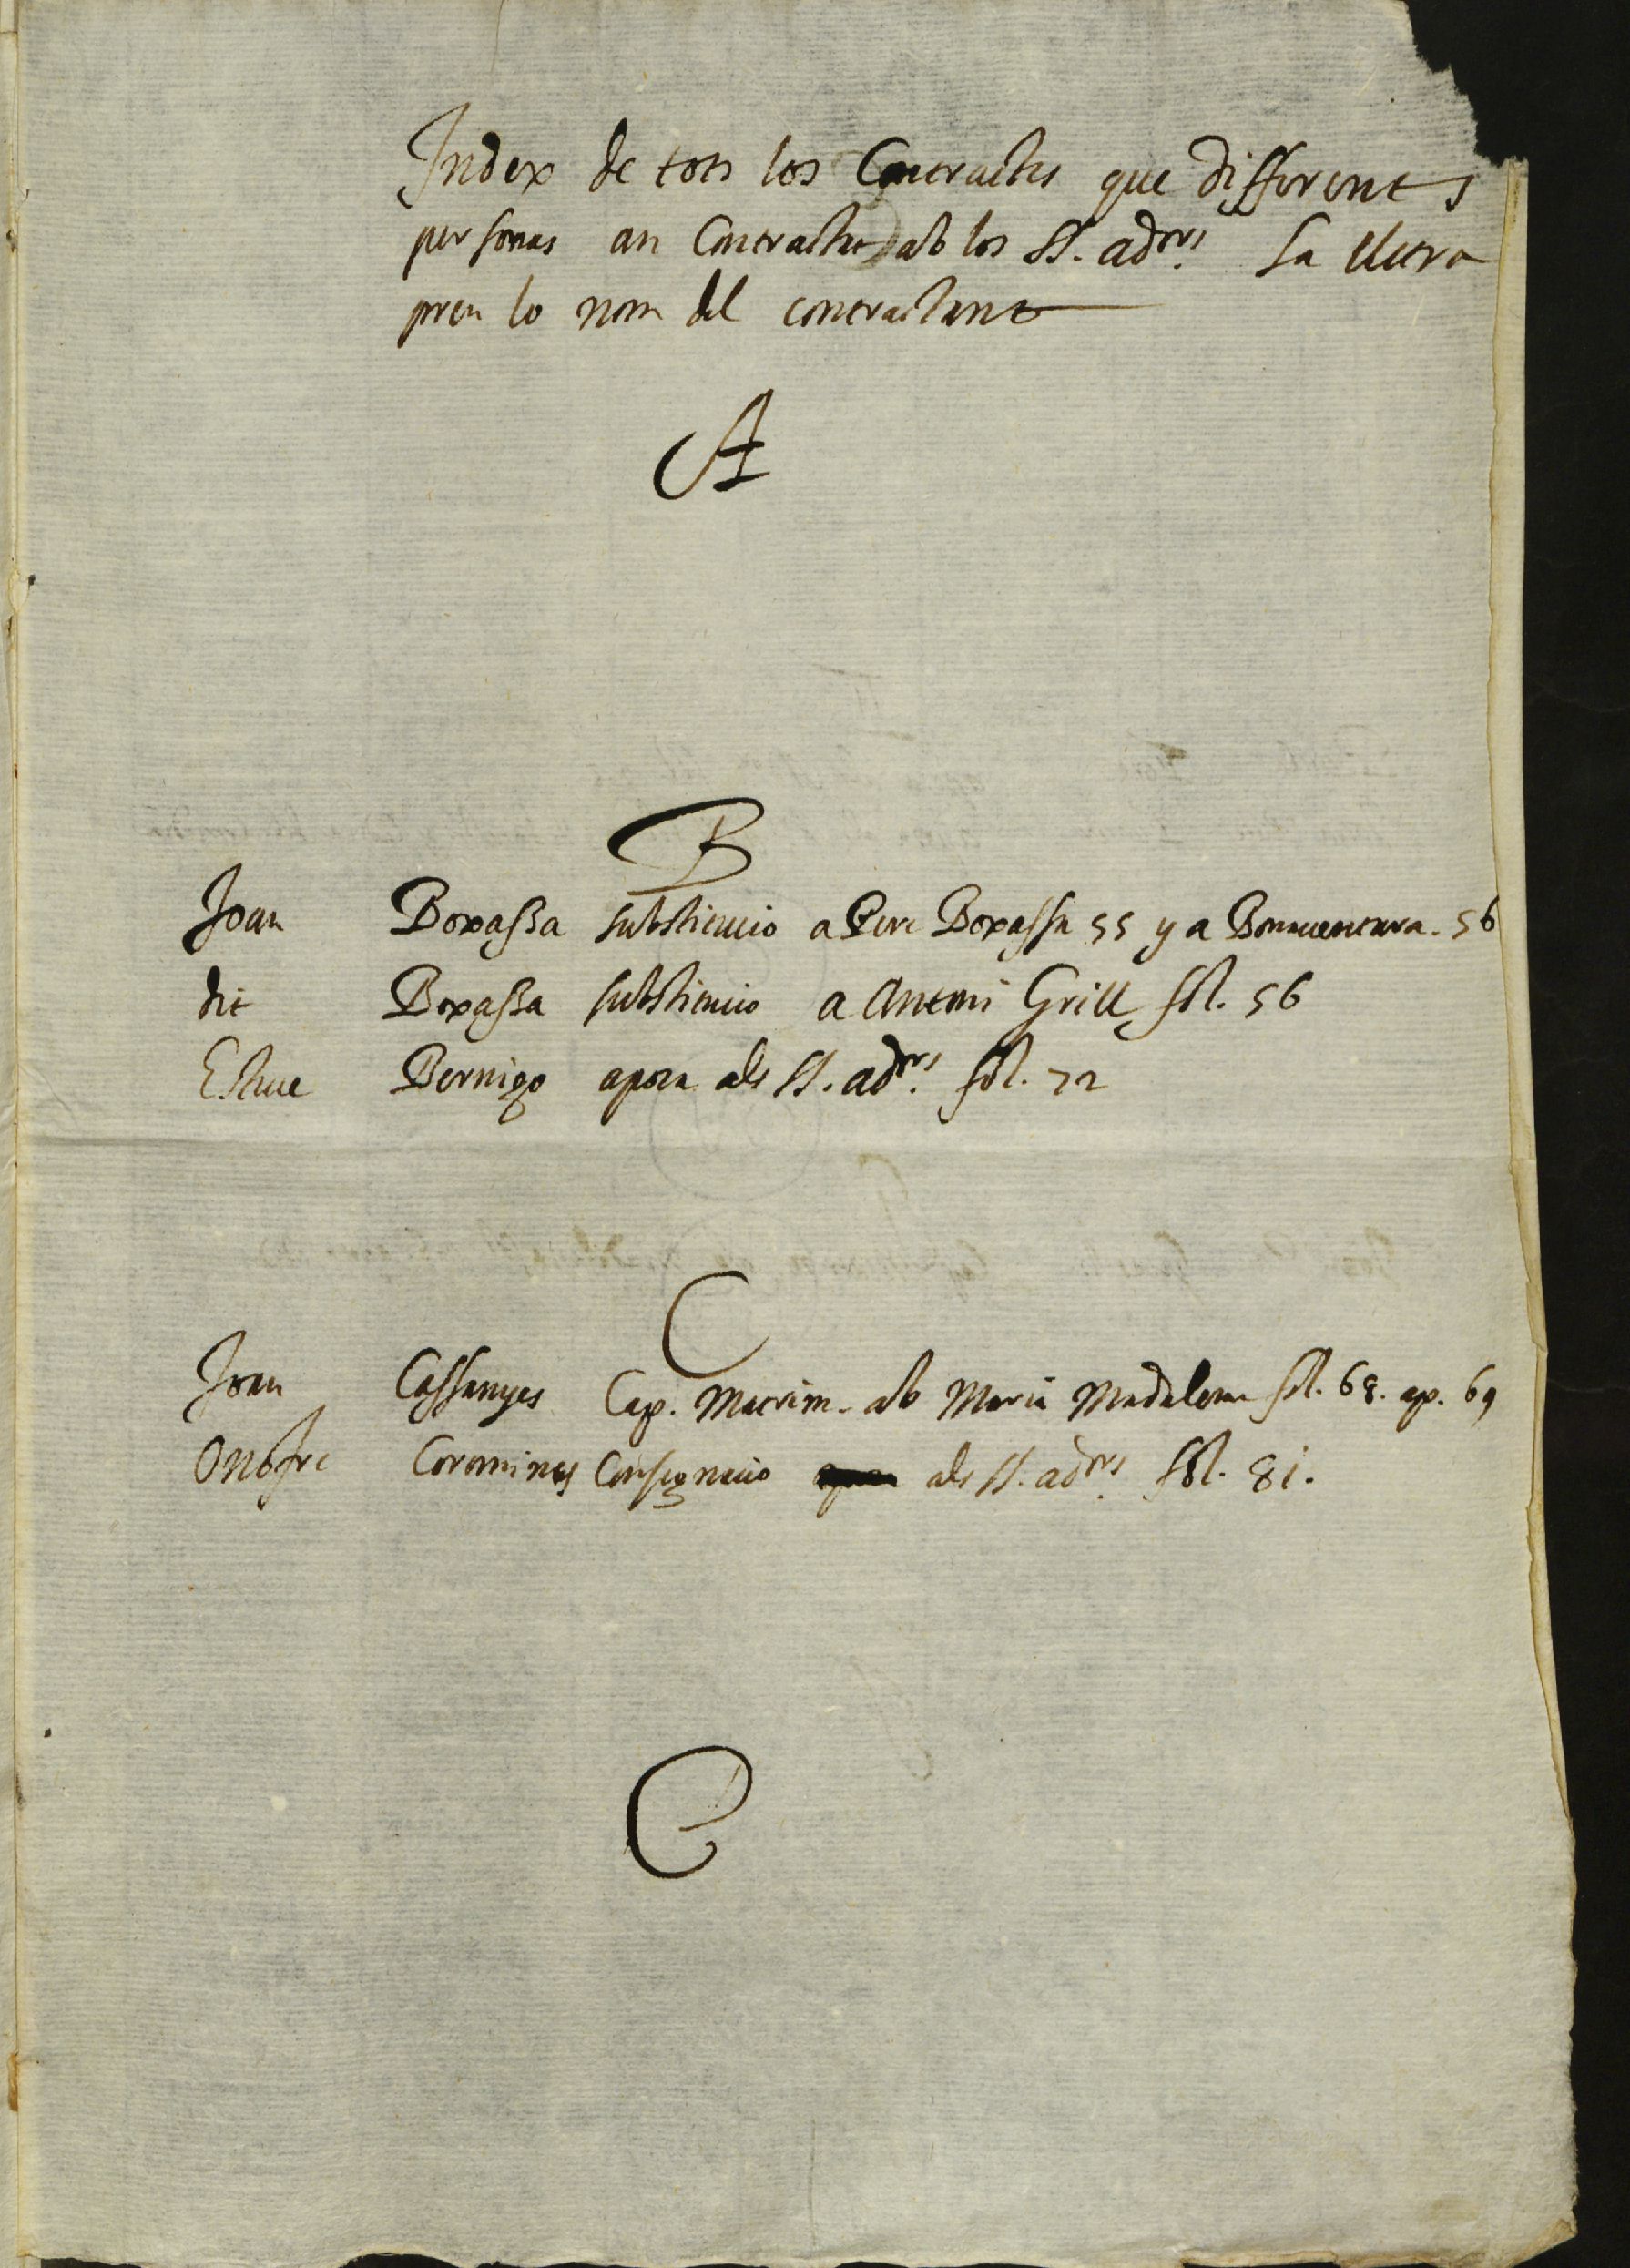 Index de tots los Contractes que differents
personas an Contractat ab los SS. adors. La lletra
pren lo nom del contractant
A
B
Joan Boxassa substitucio a Pere Boxassa 55 y a Bonaventura. 56
dit Boxassa substitucio a Antoni Grill fol. 56
Esteve Bernigo apoca als SS. adors. fol. 72
C
Joan Cassanyes Cap. Matrim. ab Maria Madalena fol. 68. ap. 69
Onofre Coromines Consignacio als SS. adors. fol. 81.